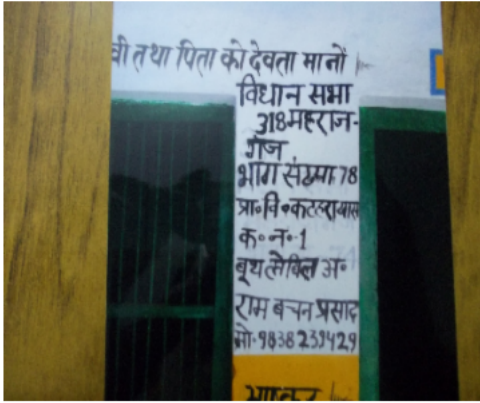 वी तथा पिता को देवता मानों
विधान सभा
318महराज-
गंज
भाग संख्या 78
प्रा॰वि॰कटहराखास
क॰न॰-1
बूथ लेविल अ॰
राम बचन प्रसाद
मो॰9838239429